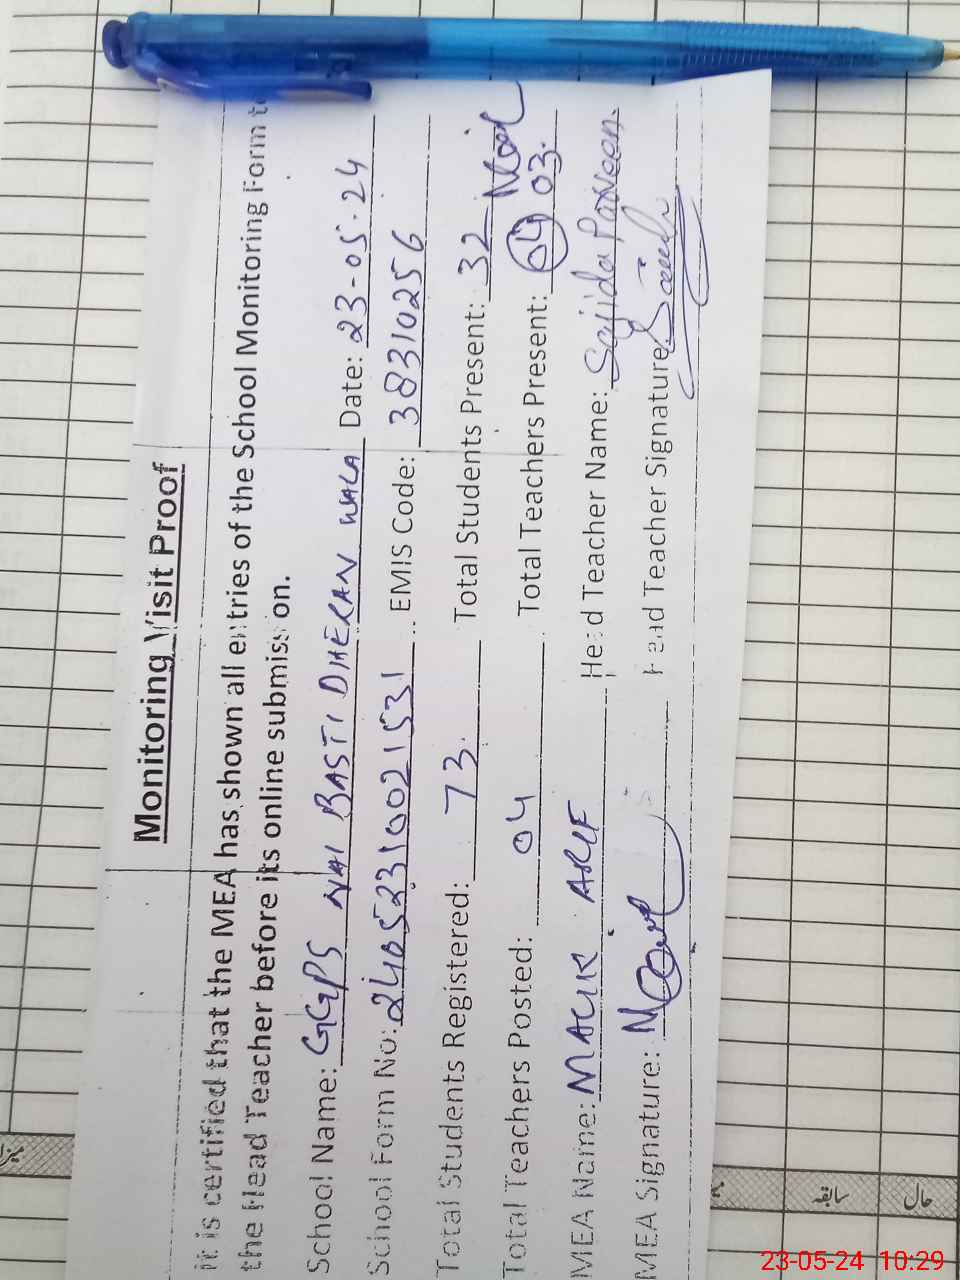 Monitoring Visit Proof
It is certified that the MEA has shown all entries of the School Monitoring Form to
the Head Teacher before its online submission.
School Name: GGPS NAI BASTI DHERAN WALA Date: 23-05-24
School Form No: 24052310021531 EMIS Code: 38310256
Total Students Registered: 73. Total Students Present: 32
Total Teachers Posted: 04 Total Teachers Present: 04 03.
MEA Name: MALIK ARIF Head Teacher Name: Sajida Parveen.
MEA Signature: Head Teacher Signature
سابقہ
حال
23-05-24 10:29